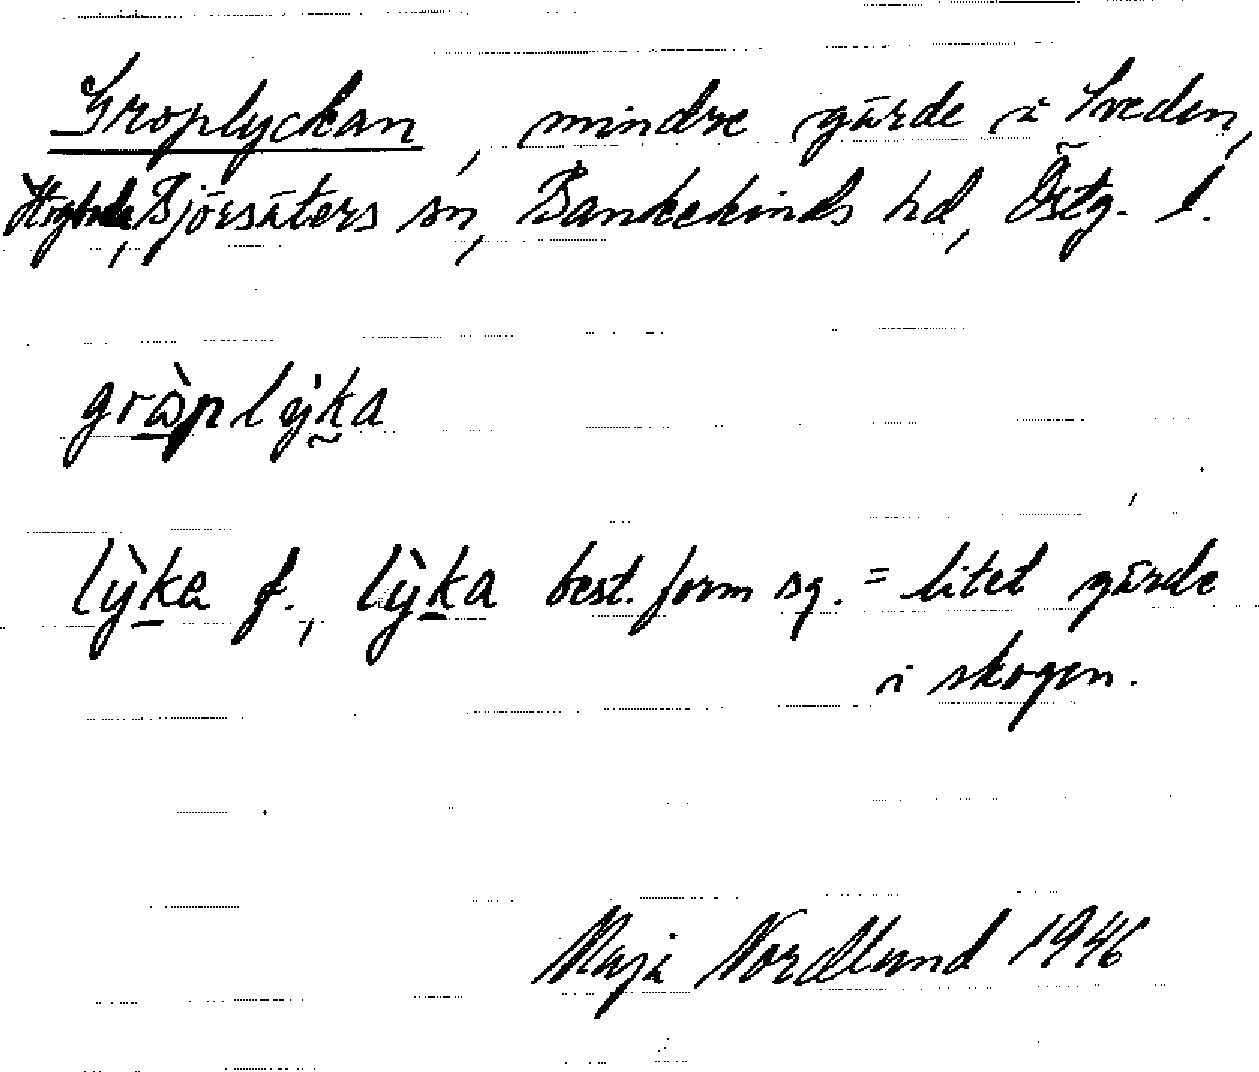 Groplyckan, mindre gärde i Sveden,
Björsäters sn, Bankekinds hd, Östg. l.
gràplỳka
lỳka f., lỳka best. form sg. = litet gärde
i skogen.
Maja Nordlund 1946